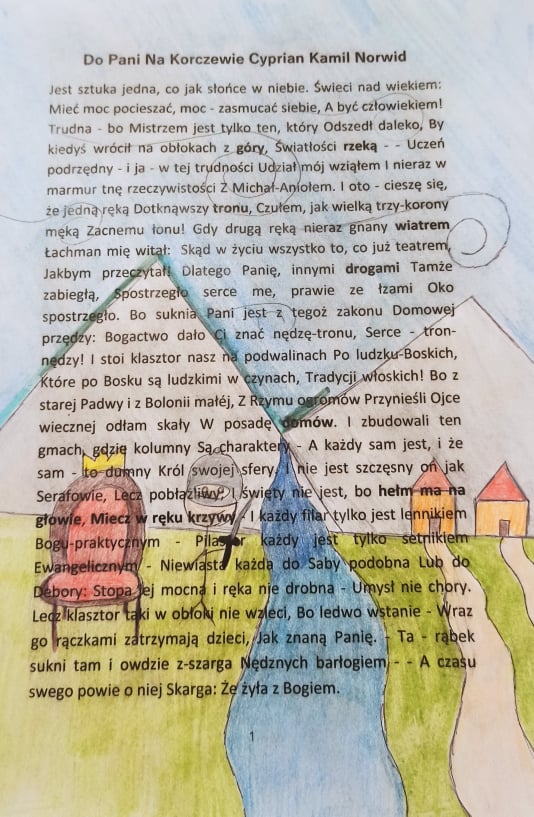 Do Pani Na Korczewie Cyprian Kamil Norwid
Jest sztuka jedna, co jak słońce w niebie. Świeci nad wiekiem:
Mieć moc pocieszać, moc - zasmucać siebie, A być człowiekiem!
Trudna - bo Mistrzem jest tylko ten, który Odszedł daleko, By
kiedyś wrócił na obłokach z góry, Światłości rzeką - - Uczeń
podrzędny - i ja - w tej trudności Udział mój wziąłem I nieraz w
marmur tnę rzeczywistości Z Michał-Aniołem. I oto - cieszę się,
że jedną ręką Dotknąwszy tronu, Czułem, jak wielką trzy-korony
męką Zacnemu łonu! Gdy drugą ręką nieraz gnany wiatrem
Łachman mię witał: Skąd w życiu wszystko to, co już teatrem,
Jakbym przeczytał! Dlatego Panię, innymi drogami Tamże
zabiegłą, Spostrzegło serce me, prawie ze łzami Oko
spostrzegło. Bo suknia Pani jest z tegoż zakonu Domowej
przędzy: Bogactwo dało Ci znać nędzę-tronu, Serce - tron-
nędzy! I stoi klasztor nasz na podwalinach Po ludzku-Boskich,
Które po Bosku są ludzkimi w czynach, Tradycji włoskich! Bo z
starej Padwy i z Bolonii małéj, Z Rzymu ogromów Przynieśli Ojce
wiecznej odłam skały W posadę domów. I zbudowali ten
gmach, gdzie kolumny Są charaktery - A każdy sam jest, i że
sam - to dumny Król swojej sfery. I nie jest szczęsny on jak
Serafowie, Lecz pobłażliwy; I święty nie jest, bo hełm ma na
głowie, Miecz w ręku krzywy. I każdy filar tylko jest lennikiem
Bogu-praktycznym - Pilaster każdy jest tylko setnikiem
Ewangelicznym - Niewiasta każda do Saby podobna Lub do
Debory: Stopa jej mocna i ręka nie drobna - Umysł nie chory.
Lecz klasztor taki w obłoki nie wzleci, Bo ledwo wstanie - Wraz
go rączkami zatrzymają dzieci, Jak znaną Panię. - Ta - rąbek
sukni tam i owdzie z-szarga Nędznych barłogiem - - A czasu
swego powie o niej Skarga: Że żyła z Bogiem.
1